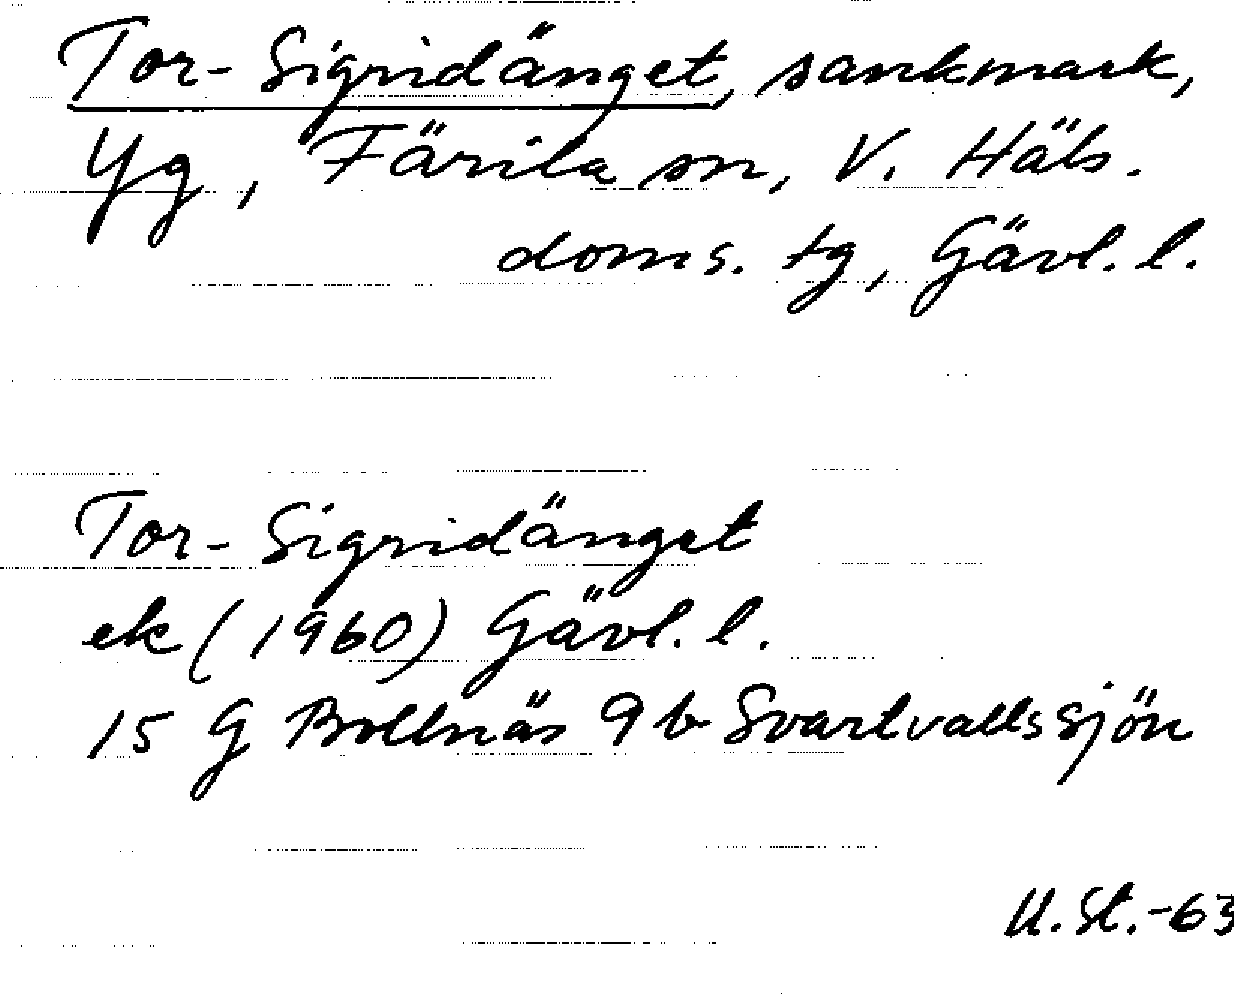 Tor-Sigridänget, sankmark,
Yg, Färila sn, V. Häls.
doms. tg, Gävl. l.
Tor-Sigridänget
ek (1960) Gävl. l.
15 G Bollnäs 9 b Svartvallssjön
U. St.-63